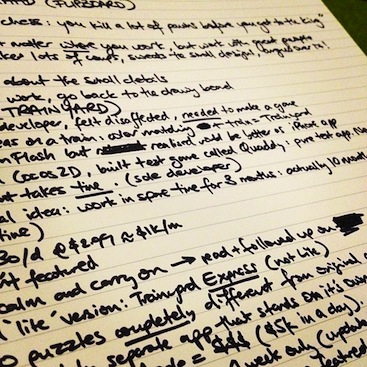 (FLIPBOARD)
chess: you kill a lot of pawns before you get to the king"
matter where you work, but work with great people
of court, sweats to small design,
about the small details
work, go back to the drawing board
TRAINYARD)
developer, felt disaffected, needed to make a game
on a train: color matching + train = Trainyard
in Flash but realized would be better as iPhone app
Cocos2D, built test game called Quaddy: pure test app,
takes time. (sole developer)
idea: work in spare time for 3 months: actually 10 months
time)
30/d @ $2.99 ≈ $1k/m
featured
calm and carry on → read + followed up on
'lite' version: Trainyard Express (not Lite)
puzzles completely different from original
separate app that starts on it's own
= $$$ ($5k in a day).
week only (update
featured